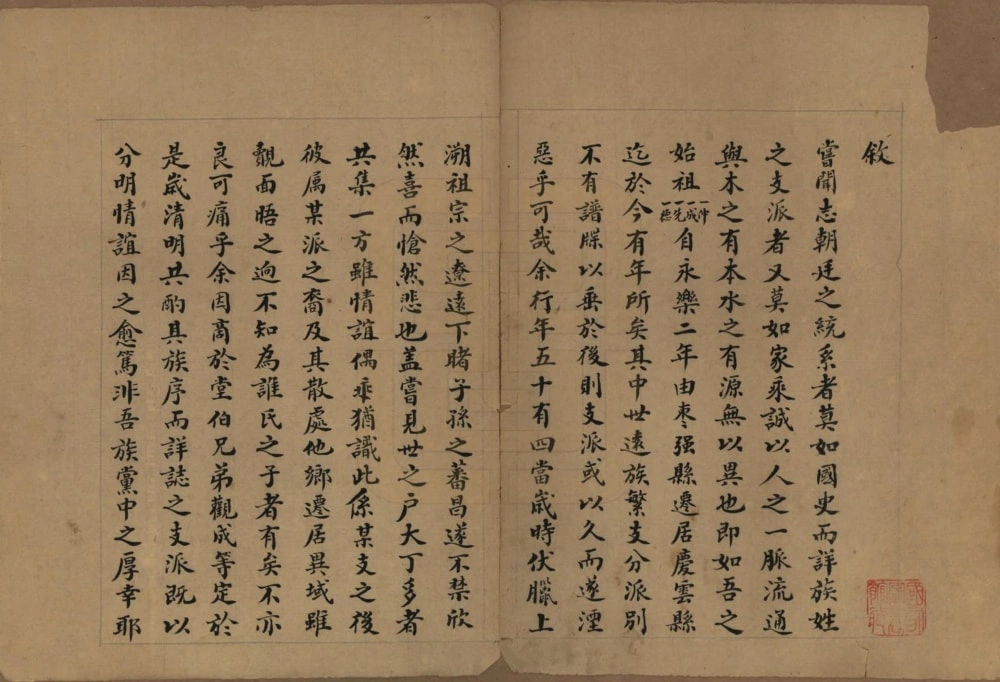 敘
嘗聞志朝廷之統系者莫如國史而詳族姓
之支派者又莫如家乘誠以人之一脈流通
與木之有本水之有源無以異也即如吾之
始祖一仲一成一先一德自永樂二年由枣强縣遷居慶雲縣
迄於今有年所矣其中世遠族繁支分派別
不有譜牒以垂於後則支派或以久而遂湮
惡乎可哉余行年五十有四當歲時伏臘上
溯祖宗之遼遠下睹子孫之蕃昌遂不禁欣
然喜而愴然悲也盖嘗見世之户大丁多者
共集一方雖情誼偶乖猶識此係某支之後
彼属某派之裔及其散處他鄉遷居異域雖
覿面晤之迥不知為誰氏之子者有矣不亦
良可痛乎余因商於堂伯兄弟觀成等定於
是歲清明共酌具族序而詳誌之支派既以
分明情誼因之愈篤非吾族黨中之厚幸耶